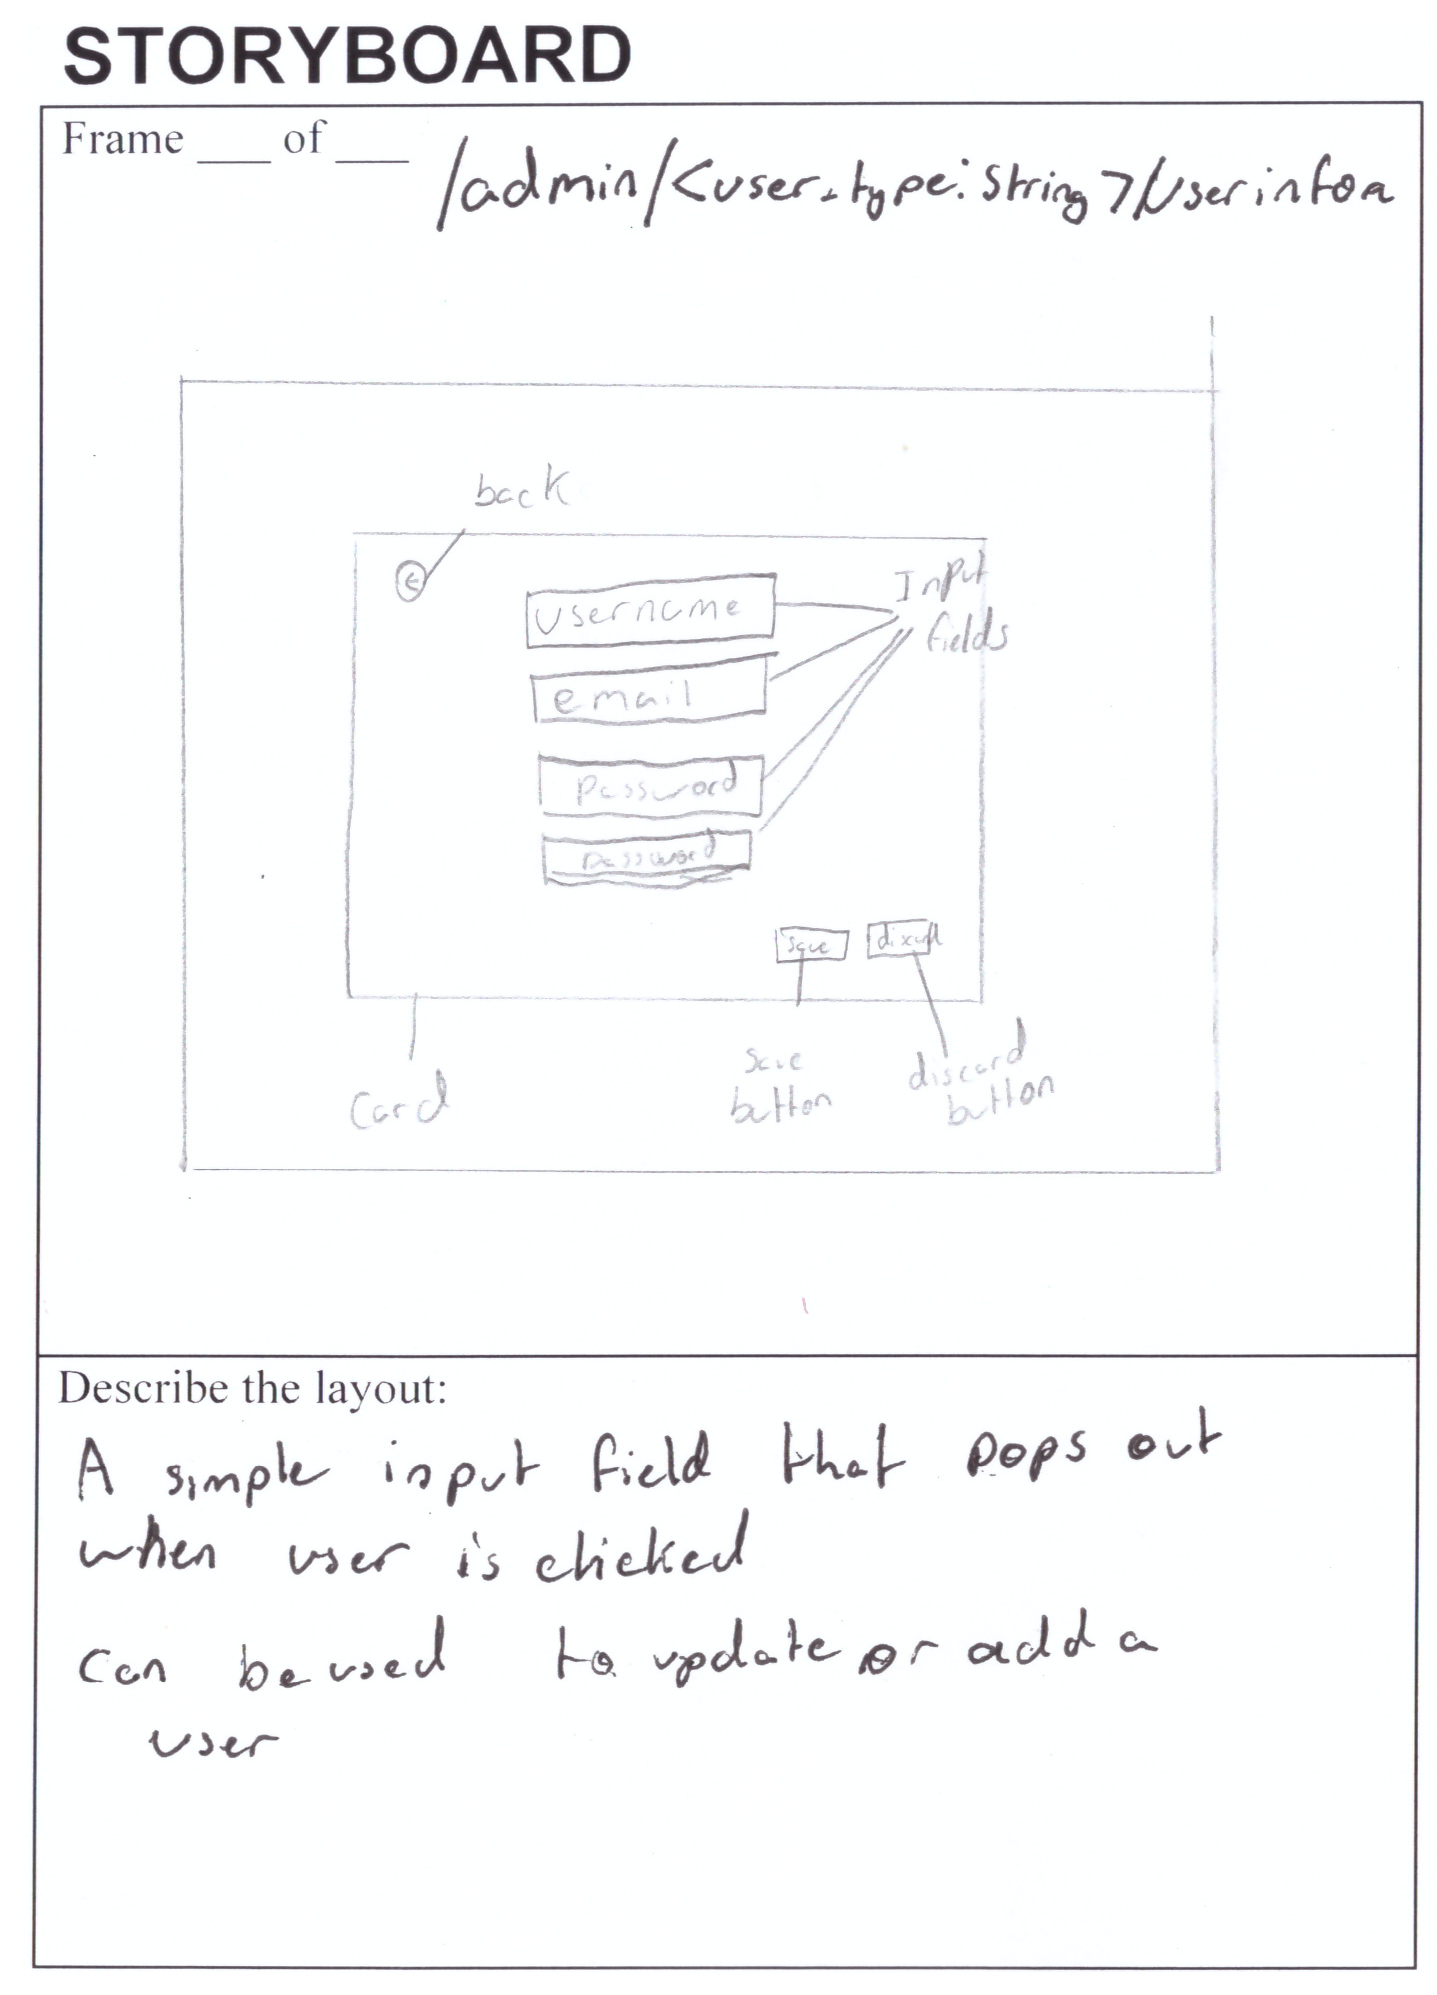 STORYBOARD
Frame ___ of ___
/admin/<user_type:string>/Userinfoa
back
username
Input
fields
email
password
password
save
discard
card
save
button
discard
button
Describe the layout:
A simple input field that pops out
when user is clicked
can be used to update or add a
user